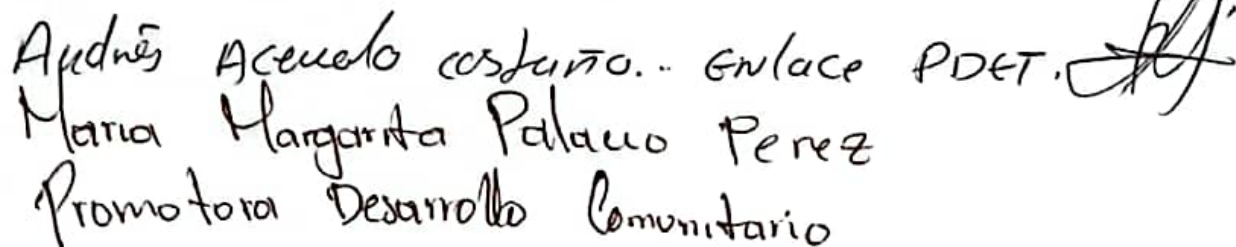 Andrés Acevedo castaño.. Enlace PDET.
Maria Margarita Palacio Perez
Promotora Desarrollo Comunitario